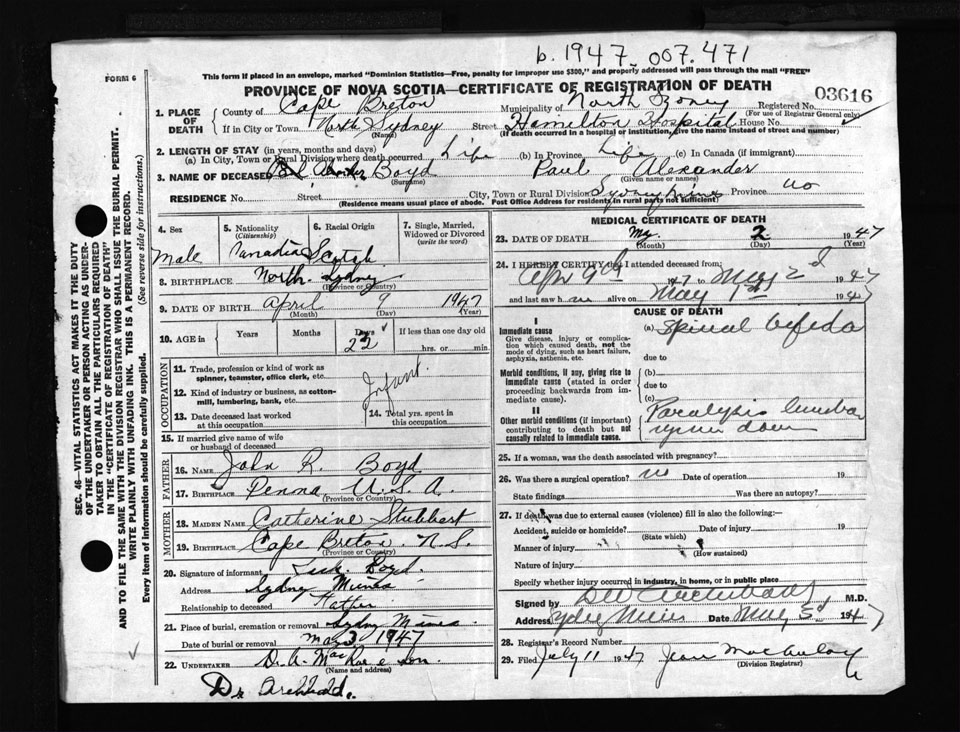 b. 1947. 007.471
FORM 6
This form if placed in an envelope, marked "Dominion Statistics—Free, penalty for improper use $300," and properly addressed will pass through the mail "FREE"
PROVINCE OF NOVA SCOTIA—CERTIFICATE OF REGISTRATION OF DEATH
03616
1. PLACE OF DEATH
County of Cape Breton Municipality of North Registered No.
(For use of Registrar General only)
If in City or Town North Sydney Street Hamilton Hospital House No.
(Name) (If death occurred in a hospital or institution, give the name instead of street and number)
2. LENGTH OF STAY (in years, months and days)
(a) In City, Town or Rural Division where death occurred Life (b) In Province Life (c) In Canada (if immigrant)
3. NAME OF DECEASED Boyd Paul Alexander
(Surname) (Given name or names)
RESIDENCE No. Street City, Town or Rural Division Sydney Mines Province
(Residence means usual place of abode. Post Office Address for residents in rural parts not sufficient)
4. Sex
Male
5. Nationality
(Citizenship)
Canadian
6. Racial Origin
Scotch
7. Single, Married, Widowed or Divorced
(write the word)
8. BIRTHPLACE North Sydney
(Province or Country)
9. DATE OF BIRTH April 9 1947
(Month) (Day) (Year)
10. AGE in Years Months Days 22 If less than one day old
hrs. or min.
OCCUPATION
11. Trade, profession or kind of work as spinner, teamster, office clerk, etc.
Infant.
12. Kind of industry or business, as cotton-mill, lumbering, bank, etc.
13. Date deceased last worked at this occupation
14. Total yrs. spent in this occupation
15. If married give name of wife or husband of deceased
FATHER
16. NAME John R. Boyd
17. BIRTHPLACE Penna U.S.A.
(Province or Country)
MOTHER
18. MAIDEN NAME Catherine Stubbert
19. BIRTHPLACE Cape Breton. N.S.
(Province or Country)
20. Signature of informant Boyd.
Address Sydney Mines
Relationship to deceased Father
21. Place of burial, cremation or removal Sydney Mines
Date of burial or removal May 3, 1947
22. UNDERTAKER D. A. MacRae & Son
(Name and address)
Dr Archibald.
MEDICAL CERTIFICATE OF DEATH
23. DATE OF DEATH May 2 1947
(Month) (Day) (Year)
24. I HEREBY CERTIFY that I attended deceased from
Apr 9th 47 to May 2d 1947
and last saw h alive on May 1st 1947
CAUSE OF DEATH
I
Immediate cause
Give disease, injury or complication which caused death, not the mode of dying, such as heart failure, asphyxia, asthenia, etc.
(a) Spinal befeda
due to
Morbid conditions, if any, giving rise to immediate cause (stated in order proceeding backwards from immediate cause).
(b)
due to
(c)
II
Other morbid conditions (if important) contributing to death but not causally related to immediate cause.
Paralysis lumbar
down
25. If a woman, was the death associated with pregnancy?
26. Was there a surgical operation? no Date of operation 19
State findings Was there an autopsy?
27. If death was due to external causes (violence) fill in also the following:—
Accident, suicide or homicide? Date of injury 19
(State which)
Manner of injury
(How sustained)
Nature of injury
Specify whether injury occurred in industry, in home, or in public place
Signed by Archibald M.D.
Address Sydney Mines Date May 3d 1947
28. Registrar's Record Number
29. Filed July 11 1947 Jean MacAulay
(Division Registrar)
SEC. 46—VITAL STATISTICS ACT MAKES IT THE DUTY OF THE UNDERTAKER OR PERSON ACTING AS UNDERTAKER TO OBTAIN ALL THE PARTICULARS REQUIRED IN THE "CERTIFICATE OF REGISTRATION OF DEATH" AND TO FILE THE SAME WITH THE DIVISION REGISTRAR WHO SHALL ISSUE THE BURIAL PERMIT.
WRITE PLAINLY WITH UNFADING INK. THIS IS A PERMANENT RECORD.
Every item of information should be carefully supplied. (See reverse side for instructions.)